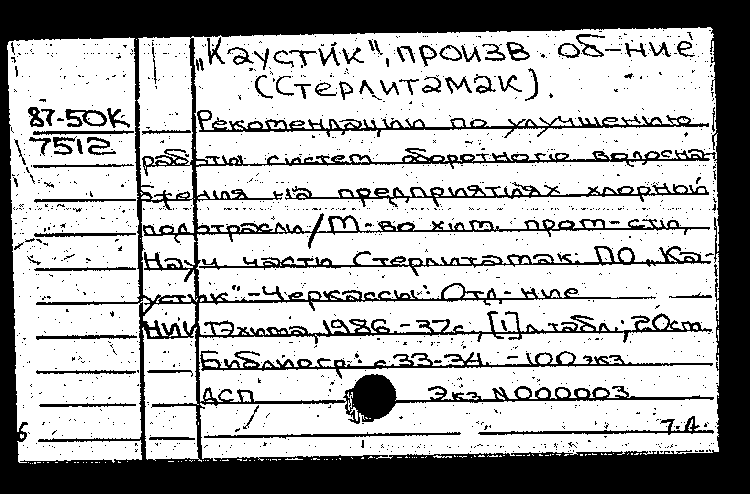 „Каустик", произв. об-ние
(Стерлитамак).
87-50К
7512
Рекомендации по улучшению
работы систем оборотного водосна-
бжения на предприятиях хлорной
подотрасли/М-во хим. пром-сти,
Науч части Стерлитамак. ПО „Ка-
устик".-Черкассы: Отд-ние
НИИТЭхима, 1986.-37с., [1] л. табл.; 20см
Библиогр.: с.33-34. -100 экз.
ДСП Экз N000003
6 Т.А.